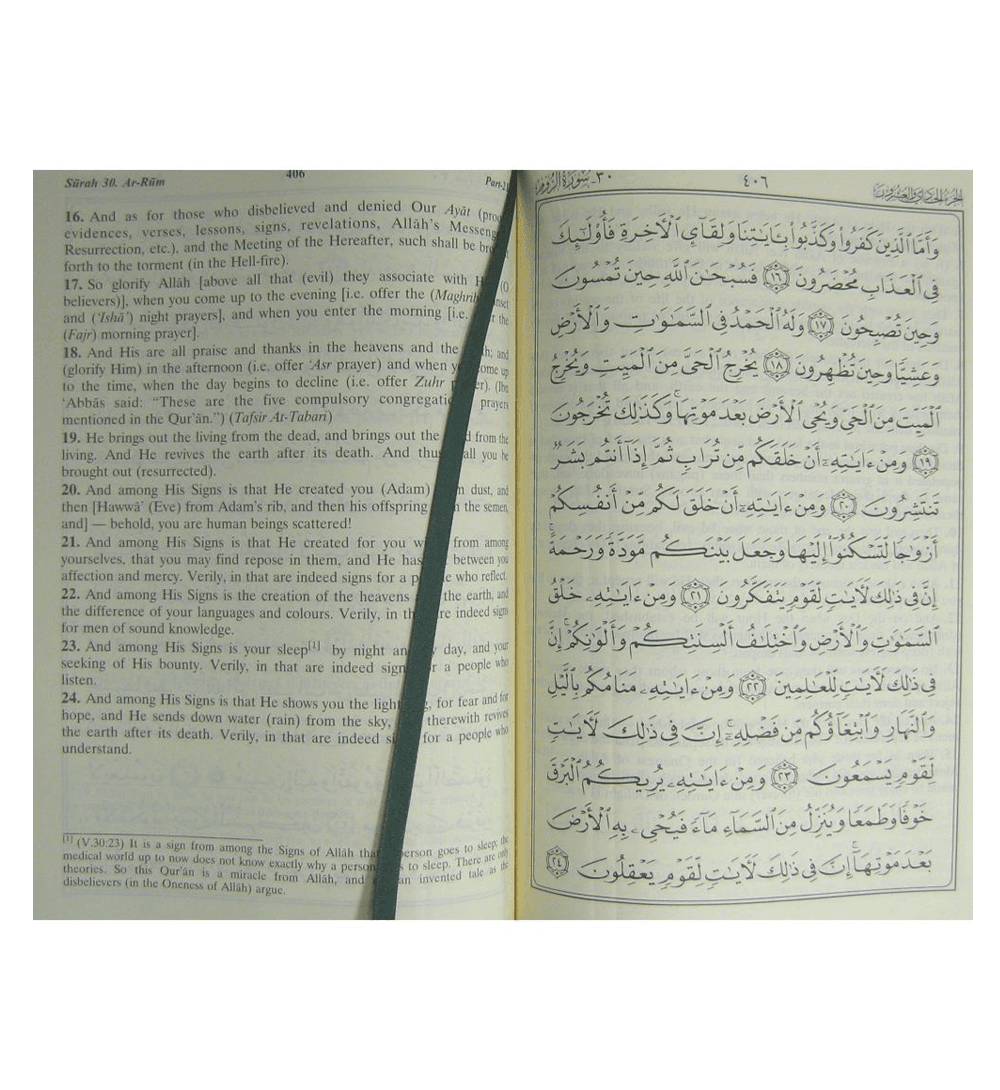 Sūrah 30. Ar-Rūm 406 Part-21
16. And as for those who disbelieved and denied Our Ayāt (proo
evidences, verses, lessons, signs, revelations, Allāh's Messeng
Resurrection, etc.), and the Meeting of the Hereafter, such shall be bro
forth to the torment (in the Hell-fire).
17. So glorify Allāh [above all that (evil) they associate with H (O
believers)], when you come up to the evening [i.e. offer the (Maghrib) nset
and ('Ishā') night prayers], and when you enter the morning [i.e. r the
(Fajr) morning prayer].
18. And His are all praise and thanks in the heavens and the th; and
(glorify Him) in the afternoon (i.e. offer 'Asr prayer) and when y ome up
to the time, when the day begins to decline (i.e. offer Zuhr p er). (Ibn
'Abbās said: "These are the five compulsory congregatio prayers
mentioned in the Qur'ān.") (Tafsir At-Tabari)
19. He brings out the living from the dead, and brings out the d from the
living. And He revives the earth after its death. And thus all you be
brought out (resurrected).
20. And among His Signs is that He created you (Adam) m dust, and
then [Hawwā' (Eve) from Adam's rib, and then his offspring m the semen,
and] — behold, you are human beings scattered!
21. And among His Signs is that He created for you w from among
yourselves, that you may find repose in them, and He has between you
affection and mercy. Verily, in that are indeed signs for a p e who reflect.
22. And among His Signs is the creation of the heavens the earth, and
the difference of your languages and colours. Verily, in th re indeed signs
for men of sound knowledge.
23. And among His Signs is your sleep[1] by night an day, and your
seeking of His bounty. Verily, in that are indeed sign r a people who
listen.
24. And among His Signs is that He shows you the light g, for fear and for
hope, and He sends down water (rain) from the sky, therewith revives
the earth after its death. Verily, in that are indeed si for a people who
understand.
[1] (V.30:23) It is a sign from among the Signs of Allāh that person goes to sleep; the
medical world up to now does not know exactly why a person s to sleep. There are only
theories. So this Qur'ān is a miracle from Allāh, and an invented tale as the
disbelievers (in the Oneness of Allāh) argue.
الجزء الحادي والعشرون ٤٠٦ ٣٠- سورة الروم
وَأَمَّا ٱلَّذِينَ كَفَرُوا۟ وَكَذَّبُوا۟ بِـَٔايَـٰتِنَا وَلِقَآئِ ٱلْـَٔاخِرَةِ فَأُو۟لَـٰٓئِكَ
فِى ٱلْعَذَابِ مُحْضَرُونَ ١٦ فَسُبْحَـٰنَ ٱللَّهِ حِينَ تُمْسُونَ
وَحِينَ تُصْبِحُونَ ١٧ وَلَهُ ٱلْحَمْدُ فِى ٱلسَّمَـٰوَٰتِ وَٱلْأَرْضِ
وَعَشِيًّا وَحِينَ تُظْهِرُونَ ١٨ يُخْرِجُ ٱلْحَىَّ مِنَ ٱلْمَيِّتِ وَيُخْرِجُ
ٱلْمَيِّتَ مِنَ ٱلْحَىِّ وَيُحْىِ ٱلْأَرْضَ بَعْدَ مَوْتِهَا ۚ وَكَذَٰلِكَ تُخْرَجُونَ
١٩ وَمِنْ ءَايَـٰتِهِۦٓ أَنْ خَلَقَكُم مِّن تُرَابٍ ثُمَّ إِذَآ أَنتُم بَشَرٌ
تَنتَشِرُونَ ٢٠ وَمِنْ ءَايَـٰتِهِۦٓ أَنْ خَلَقَ لَكُم مِّنْ أَنفُسِكُمْ
أَزْوَٰجًا لِّتَسْكُنُوٓا۟ إِلَيْهَا وَجَعَلَ بَيْنَكُم مَّوَدَّةً وَرَحْمَةً ۚ
إِنَّ فِى ذَٰلِكَ لَـَٔايَـٰتٍ لِّقَوْمٍ يَتَفَكَّرُونَ ٢١ وَمِنْ ءَايَـٰتِهِۦ خَلْقُ
ٱلسَّمَـٰوَٰتِ وَٱلْأَرْضِ وَٱخْتِلَـٰفُ أَلْسِنَتِكُمْ وَأَلْوَٰنِكُمْ ۚ إِنَّ
فِى ذَٰلِكَ لَـَٔايَـٰتٍ لِّلْعَـٰلِمِينَ ٢٢ وَمِنْ ءَايَـٰتِهِۦ مَنَامُكُم بِٱلَّيْلِ
وَٱلنَّهَارِ وَٱبْتِغَآؤُكُم مِّن فَضْلِهِۦٓ ۚ إِنَّ فِى ذَٰلِكَ لَـَٔايَـٰتٍ
لِّقَوْمٍ يَسْمَعُونَ ٢٣ وَمِنْ ءَايَـٰتِهِۦ يُرِيكُمُ ٱلْبَرْقَ
خَوْفًا وَطَمَعًا وَيُنَزِّلُ مِنَ ٱلسَّمَآءِ مَآءً فَيُحْىِۦ بِهِ ٱلْأَرْضَ
بَعْدَ مَوْتِهَآ ۚ إِنَّ فِى ذَٰلِكَ لَـَٔايَـٰتٍ لِّقَوْمٍ يَعْقِلُونَ ٢٤